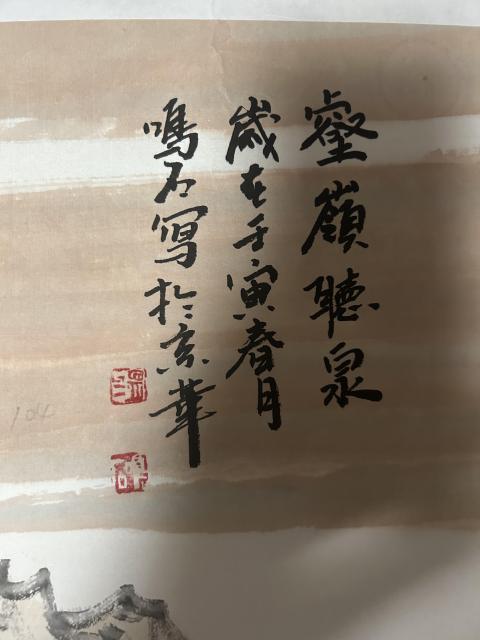 壑嶺聽泉
歲在壬寅春月
鳴石寫於京華
104